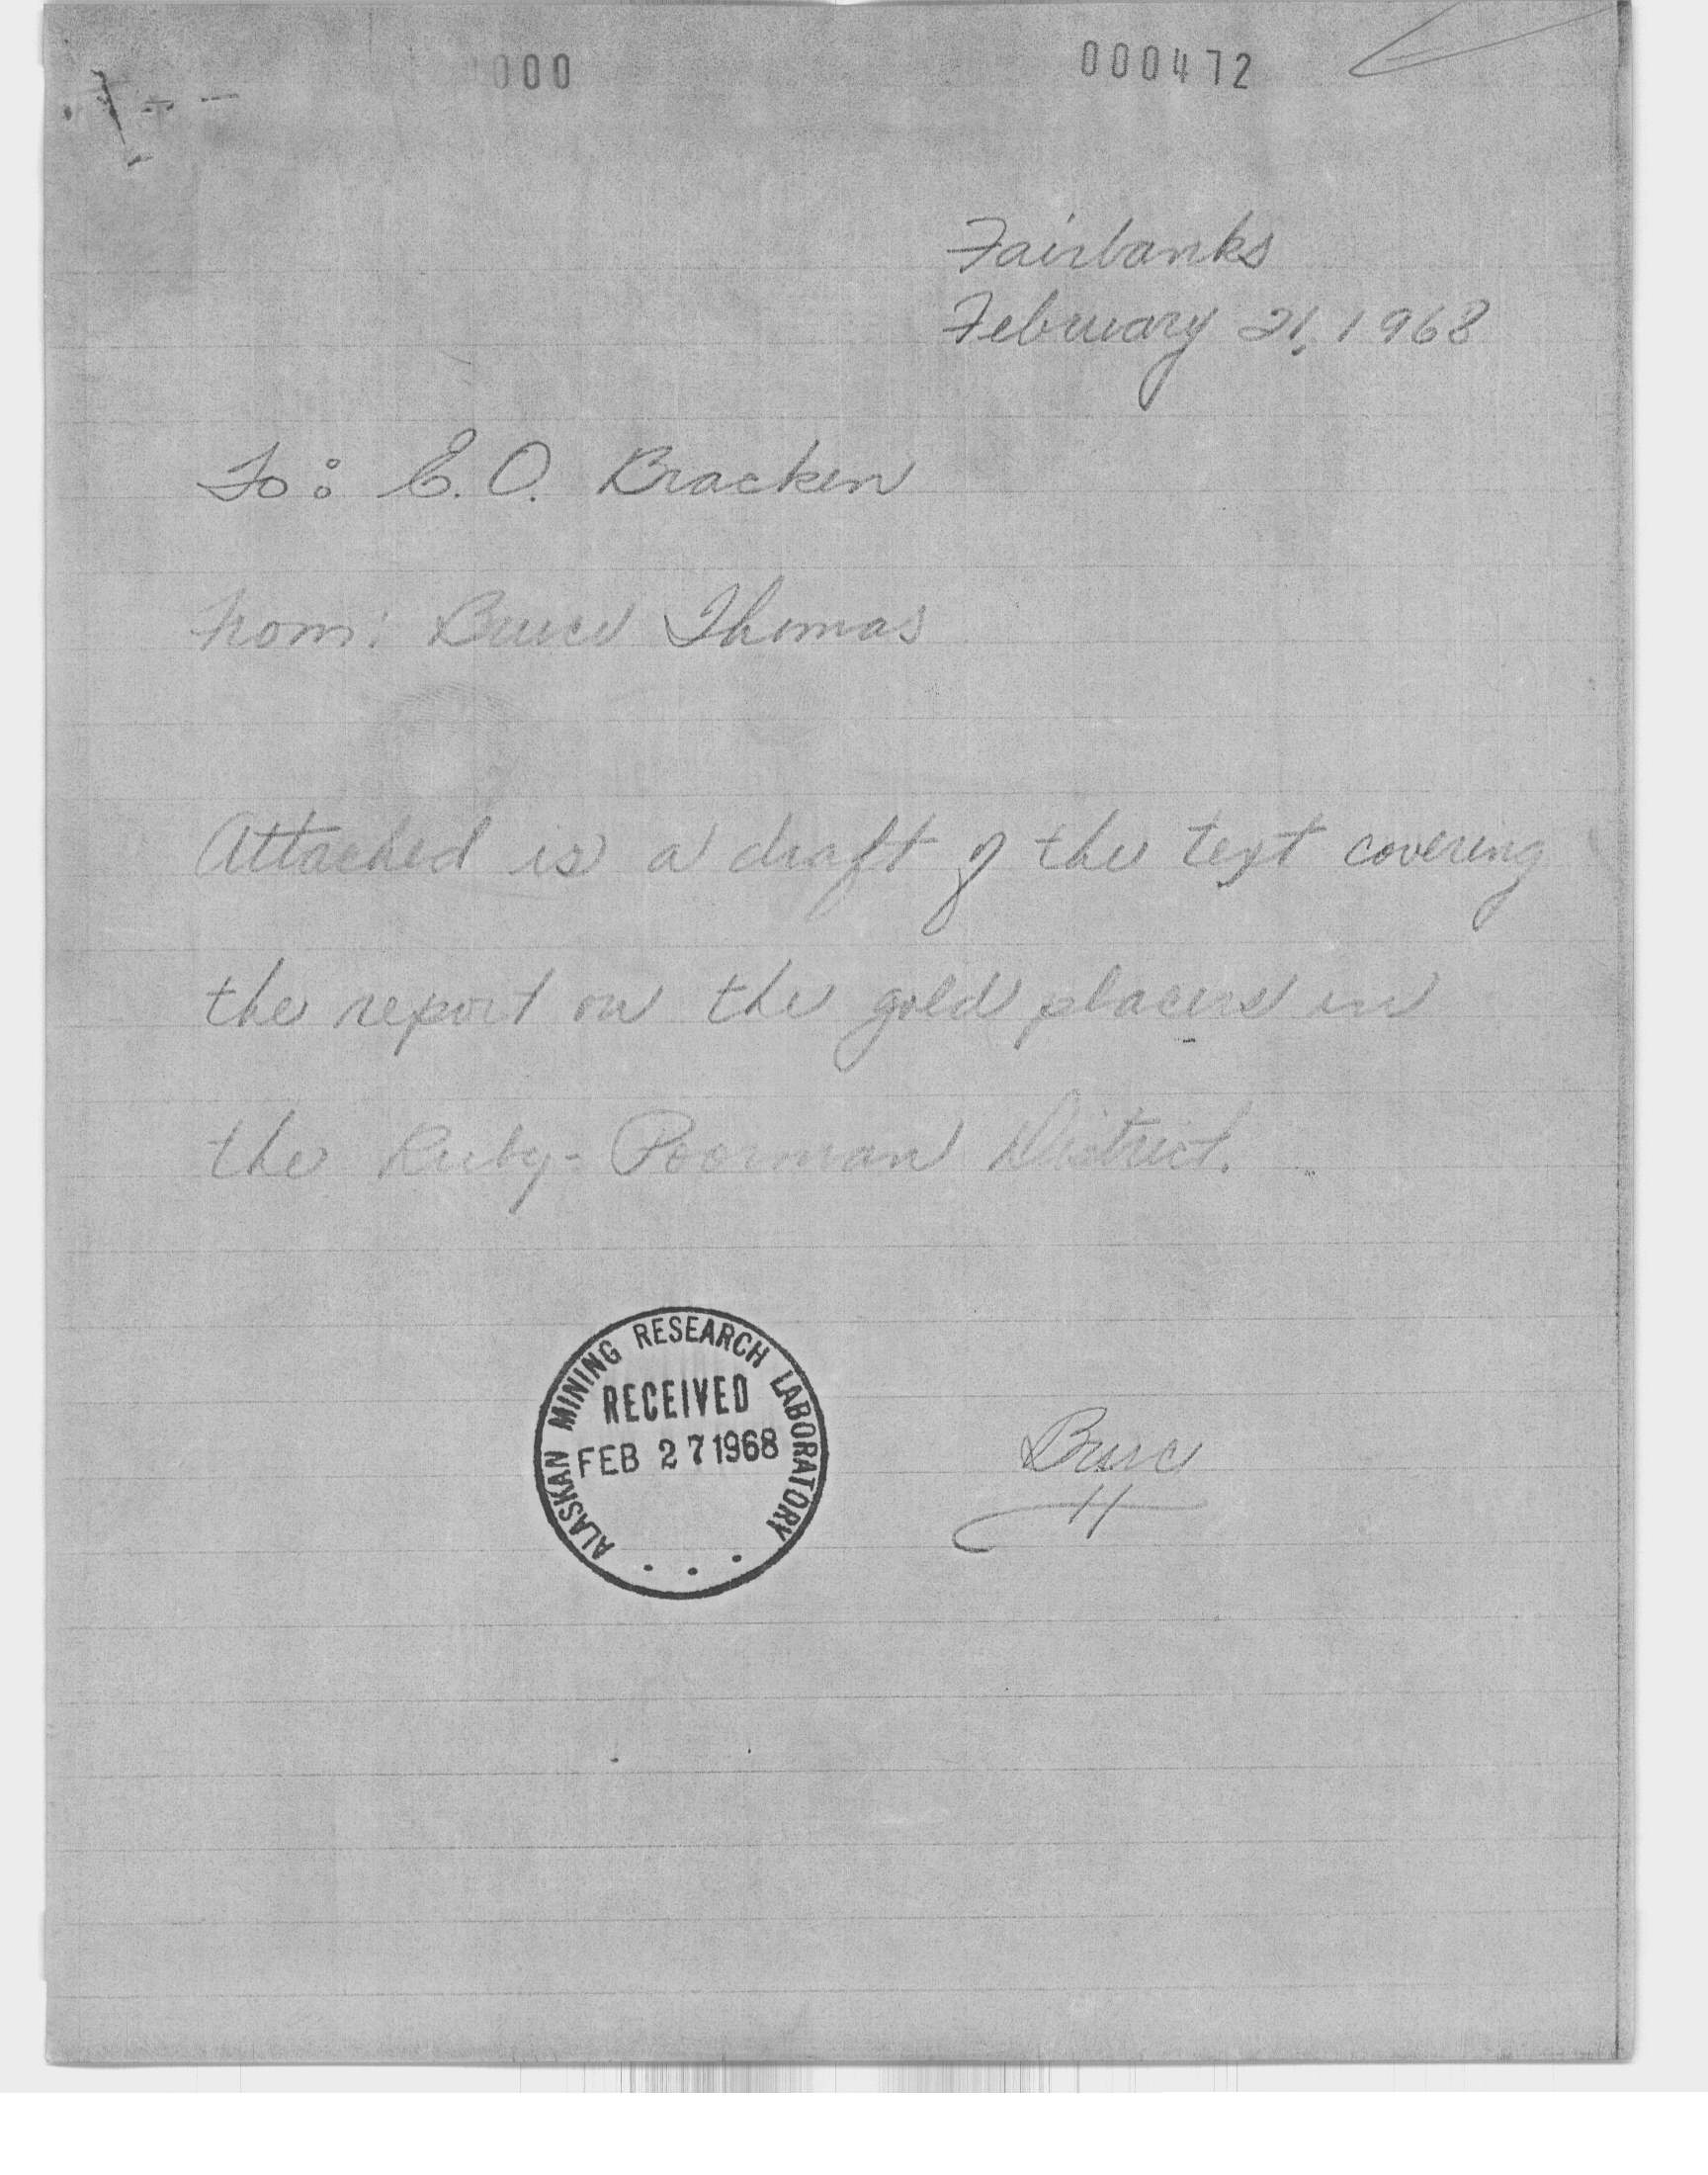 000
000472
Fairbanks
February 21, 1968
To: E. O. Bracken
From: Bruce Thomas
Attached is a draft of the text covering
the report on the gold placers in
the Ruby-Poorman District.
ALASKAN MINING RESEARCH LABORATORY
RECEIVED
FEB 27 1968
Bruce